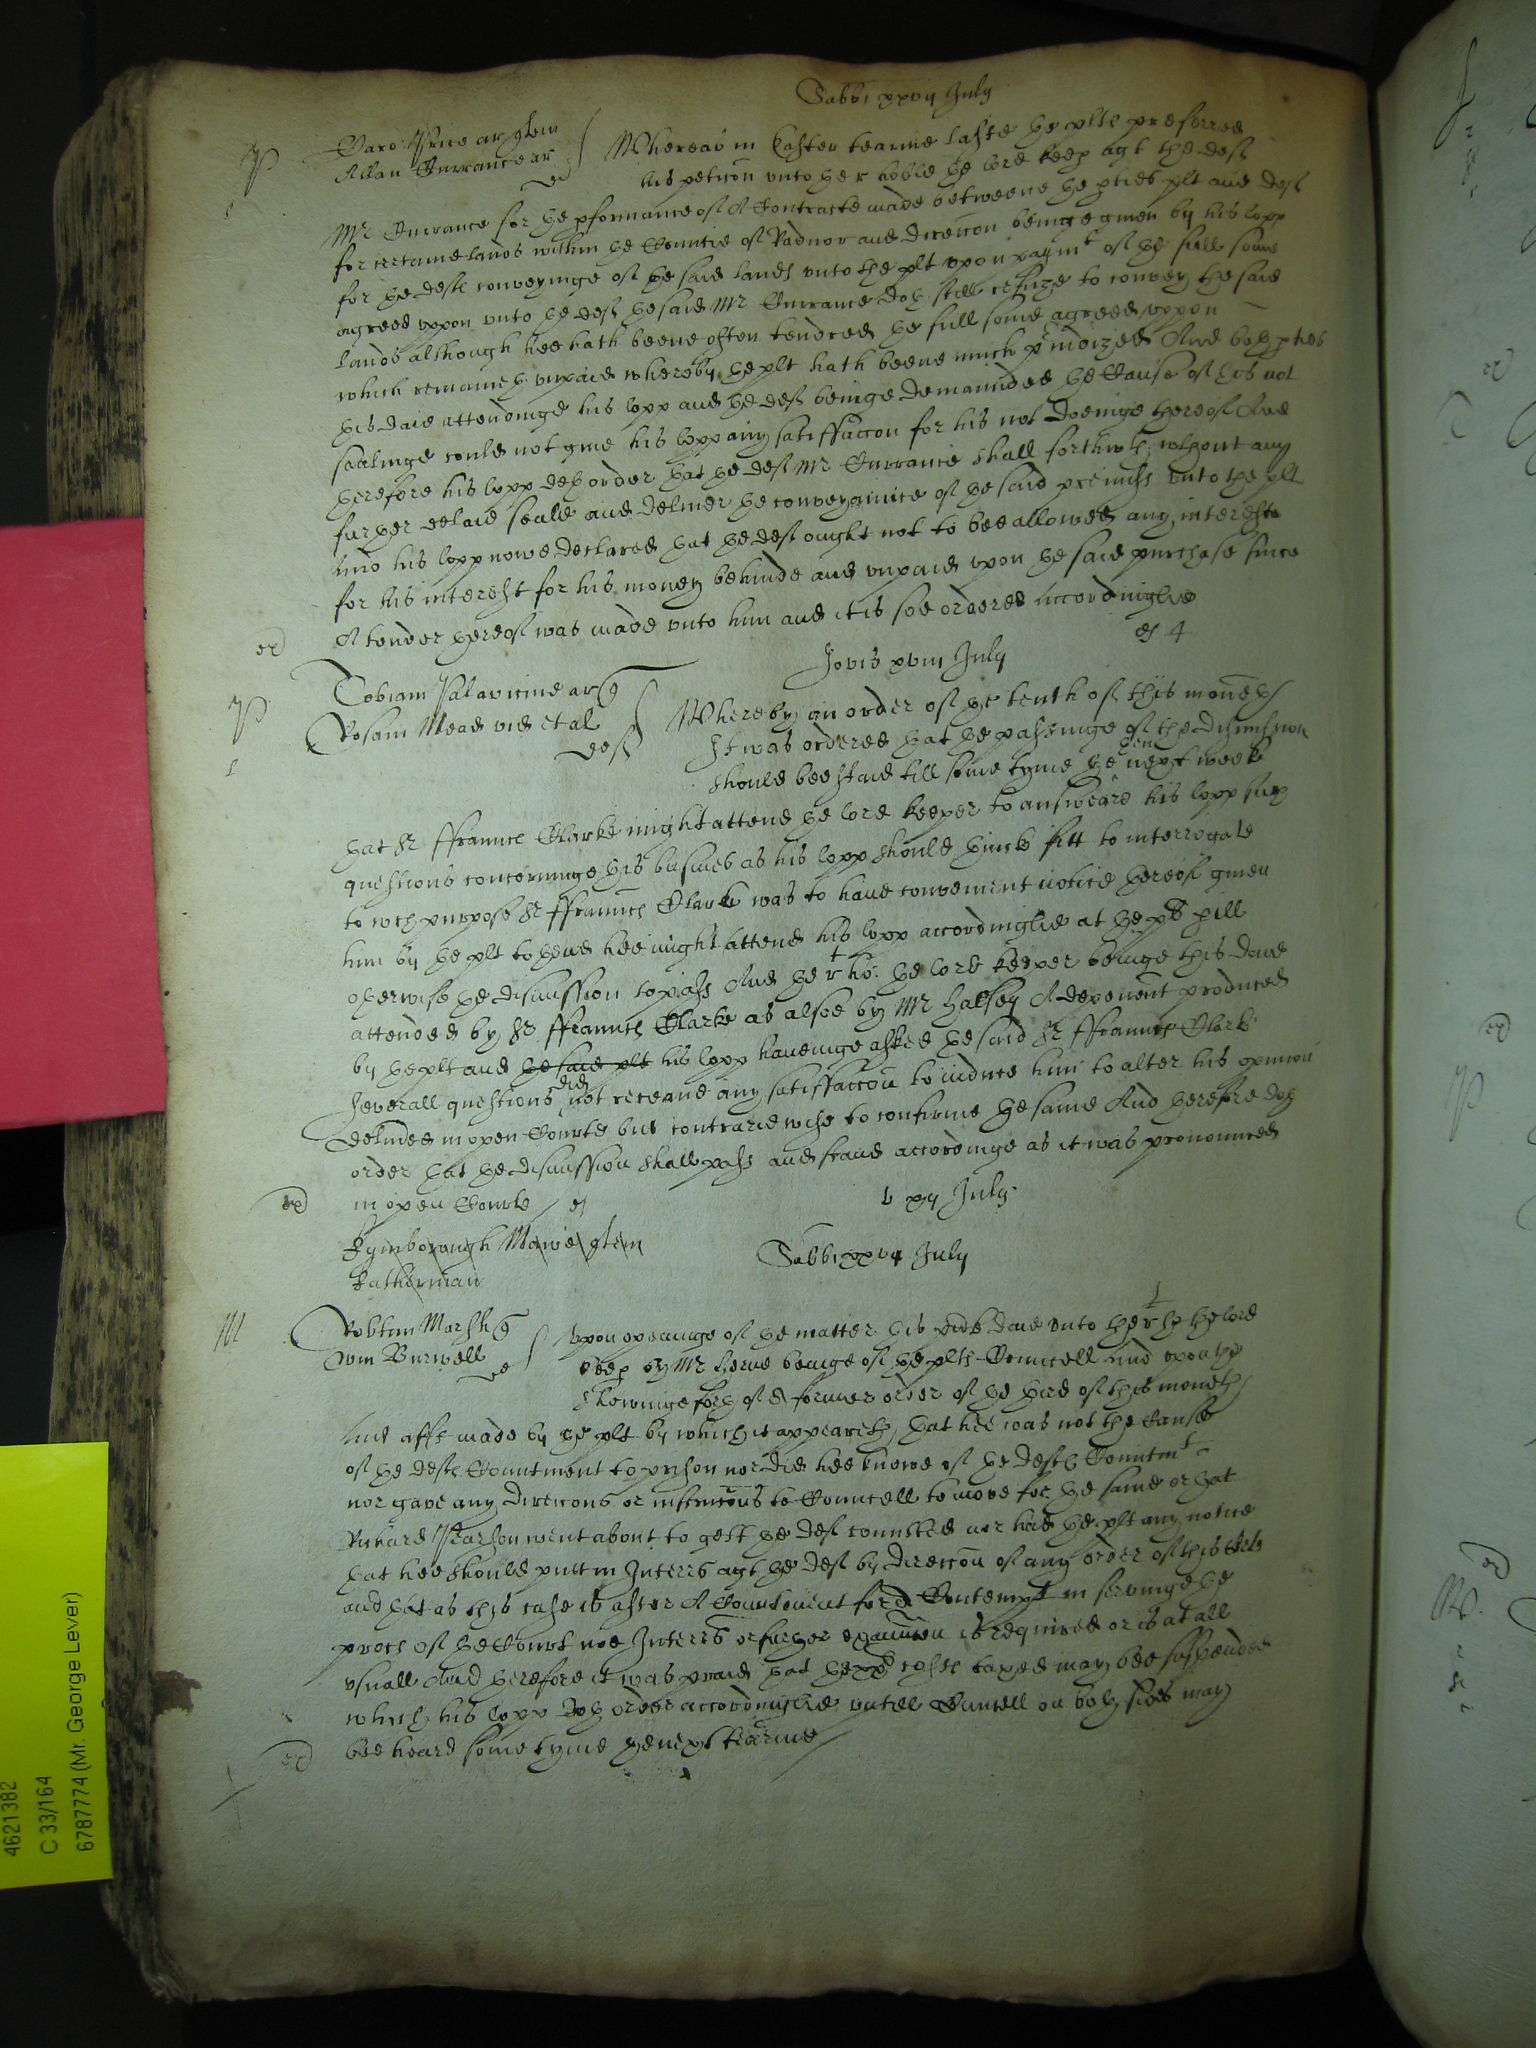 Sabbi xxvii July
P
Caro: Price ar quer
Allan Currance ar
Whereas in Easter tearme laste the plte preferred
his peticon vnto the r: hoble the lord keep agt the deft
Mr Currance for the pformance of A Contracte made betweene the pties plt and deft
for certaine lands within the Countie of Radnor and direccon beinge given by his lopp
for the defte conveyinge of the said lands vnto the plt vpon paymt of the full some
agreed vppon vnto the deft the said Mr Currance doth still refuze to convey the said
lands although hee hath beene often tendred the full some agreed vppon
which remaineth vnpaid whereby the plt hath beene much preiudized And both pties
this daie attendinge his lopp and the deft beinge demaunded the Cause of his not
sealinge could not give his lopp any satisfaccon for his not doeinge thereof And
therefore his lopp doth order that the deft Mr Currance shall forthwth wthout any
further delaie seale and deliver the conveyaunce of the said premiss vnto the plt
And his lopp nowe declared that the deft ought not to bee allowed any intereste
for his interest for his money behinde and vnpaid vpon the said purchase since
A tender thereof was made vnto him and it is soe ordered accordinglie
ex 4
Jovis xviii July
P
Tobiam Palavicine ar q
Rosam Mead vid et al
deft
Whereby an order of the tenth of this moneth
It was ordered that the passinge of the dismission
should bee staid till some tyme the then next weeke
that Sr ffrauncs Clarke might attend the lord keeper to answeare his lopp such
questions concerninge this busines as his lopp should thinke fitt to interrogate
to wch purpose Sr ffrauncs Clarke was to have convenient notice thereof given
him by the plt to thend hee might attend his lopp accordinglie at the pill
otherwise the dismission to passe And the rt ho: the lord keeper beinge this daie
attended by Sr ffrauncs Clarke as alsoe by Mr Halsey A deponent produced
by the plt and the said plt his lopp haveinge asked the said Sr ffrauncs Clarke
severall questions did not receave any satisfaccon to induce him to alter his opinion
delivered in open Courte but contrariewise to confirme the same And therefore doth
order that the dismission shall passe and stand accordinge as it was pronounced
in open Courte ex
v xii July
Kymborough Mowe quer
Katherman
Sabbi xxvii July
M
Robtum Marsh q
Wm Burwell
d
Vpon openinge of the matter this pnte daie vnto the rt ho the lord
keep by Mr Herne beinge of the plts Councell And vpon the
shewinge forth of A former order of the third of this moneth
And afft made by the plt by which it appeareth that hee was not the Cause
of the defts Comitment to prison nor did hee knowe of the defts Comitmt
nor gave any direccons or instruccons to Councell to move for the same or that
Richard Pearson went about to gett the deft comitted nor had the plt any notice
that hee should putt in Interrs agt the deft by direccon of any order of this Corte
and that as this case is after A Comitment for A Contempt in servinge the
proces of the Court noe Interrs or further examincon is required or is at all
vsuall And therefore it was praied that the costs taxed may bee suspended
which his lopp doth order accordinglie vntill Councell on both sides may
bee heard some tyme the next tearme
4621382
C 33/164
6787774 (Mr. George Lever)